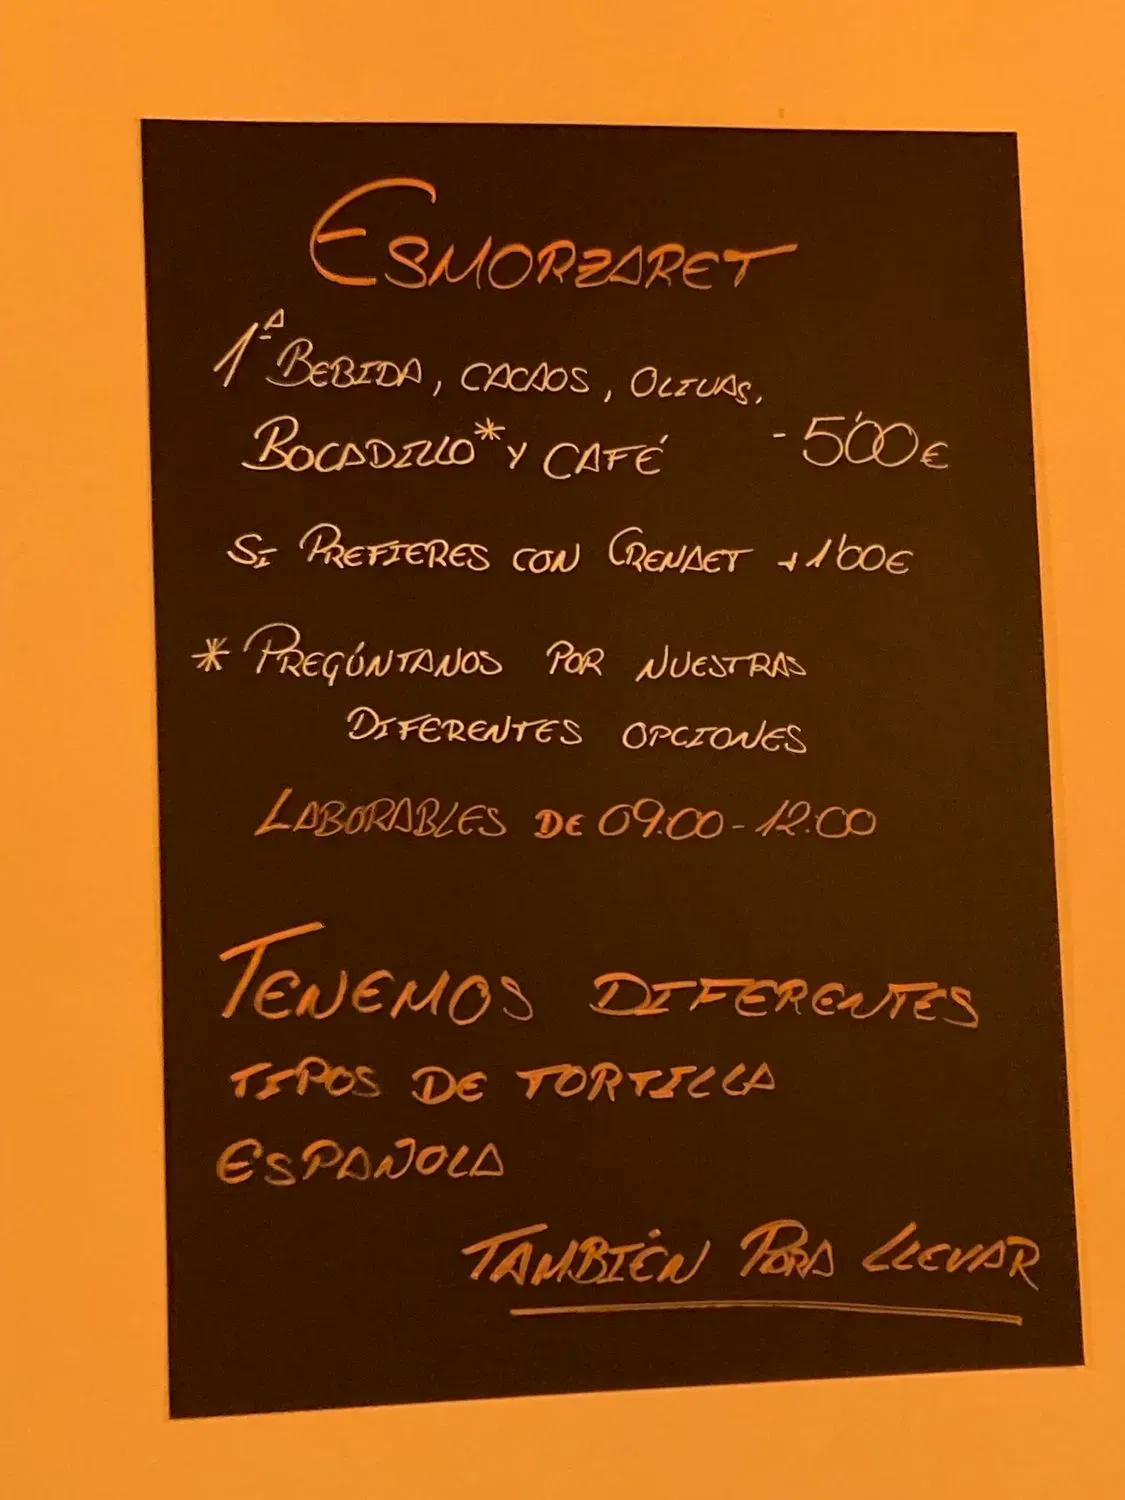 ESMORZARET
1ª BEBIDA, CACAOS, OLIVAS,
BOCADILLO* Y CAFÉ - 5'00€
SI PREFIERES CON CREMAET +1'00€
* PREGÚNTANOS POR NUESTRAS
DIFERENTES OPCIONES
LABORABLES DE 09:00-12:00
TENEMOS DIFERENTES
TIPOS DE TORTILLA
ESPAÑOLA
TAMBIÉN PARA LLEVAR